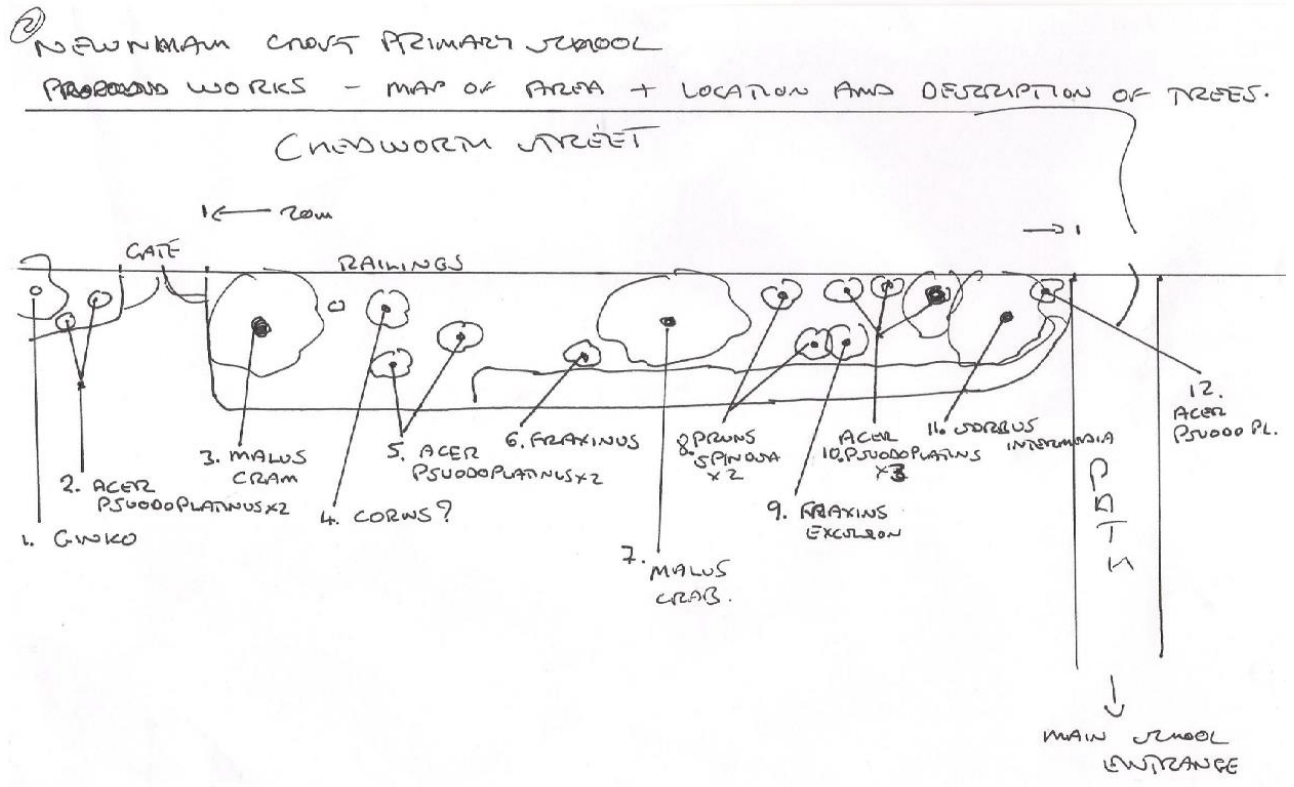 2
NEWNHAM CROFT PRIMARY SCHOOL
PROPOSED WORKS - MAP OF AREA + LOCATION AND DESCRIPTION OF TREES.
CHEDWORTH STREET
20m
GATE
RAILINGS
1. GINKO
2. ACER
PSUODOPLATINUS X2
3. MALUS
CRAB
4. CORNUS?
5. ACER
PSUODOPLATINUS X2
6. FRAXINUS
7. MALUS
CRAB.
8. PRUNS
SPINOSA
X2
9. FRAXINS
EXCELSION
ACER
10. PSUODOPLATINS
X3
11. SORBUS
INTERMEDIA
12.
ACER
PSUODO PL.
PATH
MAIN SCHOOL
ENTRANCE